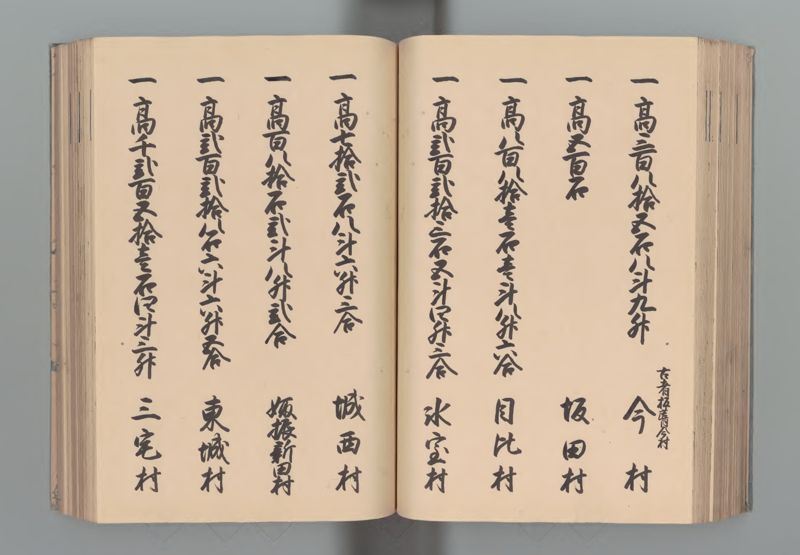 一 高三百八拾五石八斗九升 今村
一 高五百石 坂田村
一 高八百八拾壱石壱斗八升六合 目比村
一 高弐百弐拾三石五斗四升三合 氷室村
一 高七拾弐石八斗六升三合 城西村
一 高百八拾石弐斗八升弐合 坂振新田村
一 高弐百弐拾八石六斗六升五合 東城村
一 高千弐百五拾壱石四斗三升 三宅村